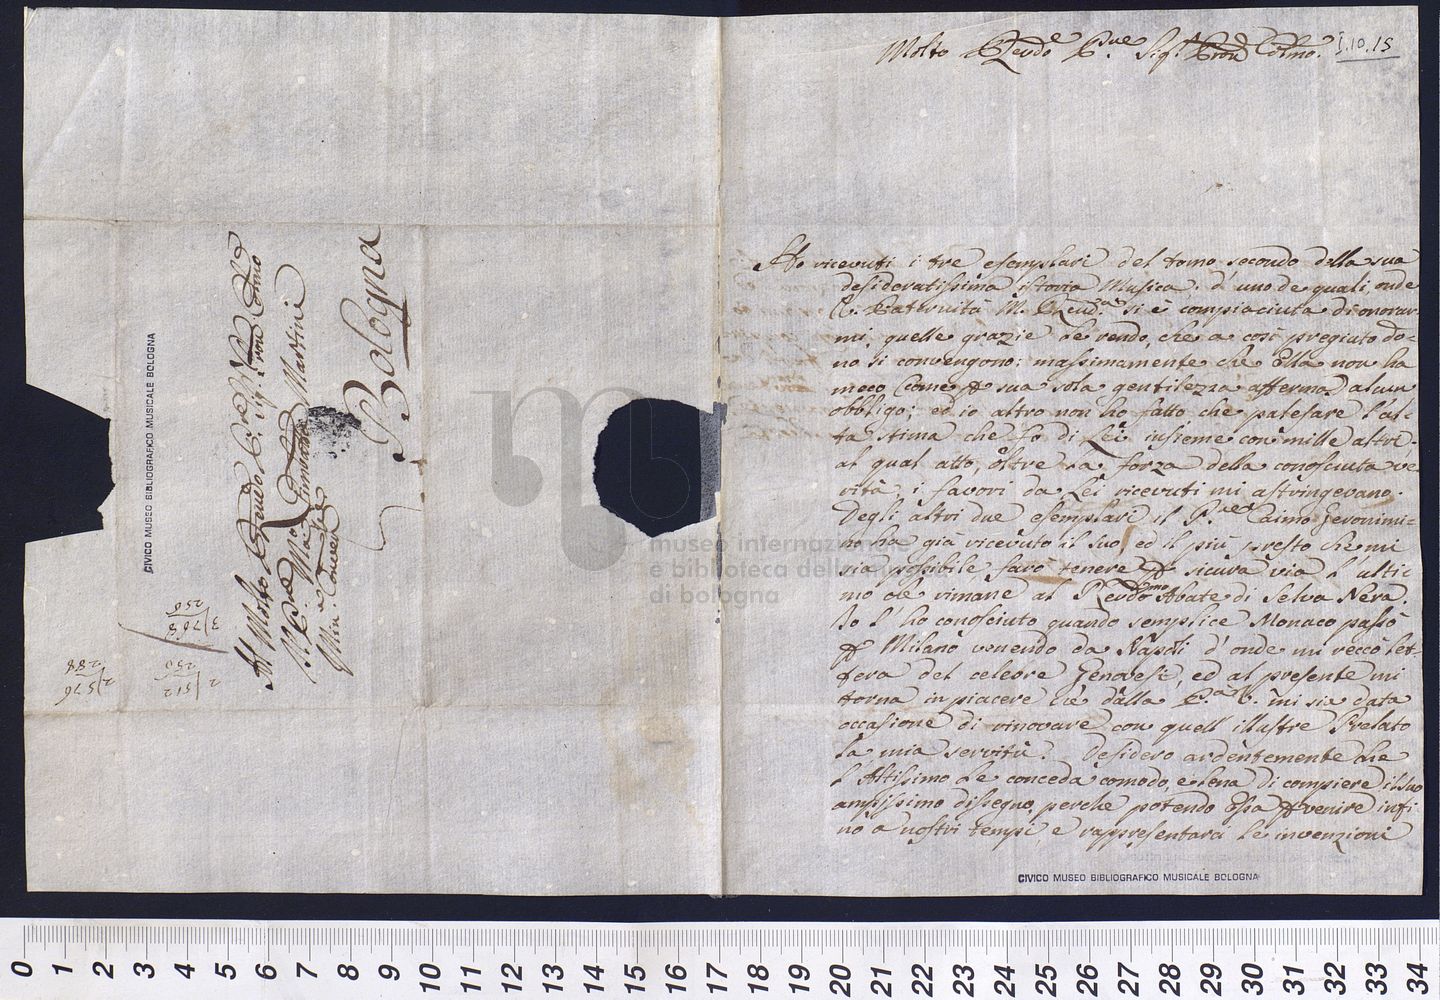 Al Molto Revdo Pre Sigr Pron Colmo
Il Pre Mro Giambatta Martini
Min: Convele
Bologna
3/768
256
2/512
256
2/576
288
CIVICO MUSEO BIBLIOGRAFICO MUSICALE BOLOGNA
I.10.15
Molto Revdo Pre Sigr Pron Colmo.
Ho ricevuti i tre esemplari del tomo secondo della sua
desideratissima istoria Musica, d'uno de quali, onde
la Paternità V. Revda si è compiaciuta di onorar-
mi, quelle grazie le rendo, che a così pregiato do-
no si convengono: massimamente che Ella non ha
meco (come per sua sola gentilezza afferma) alcun
obbligo; ed io altro non ho fatto che palesare l'al-
ta stima che fo di Lei insieme con mille altri:
al qual atto, oltre la forza della conosciuta ve-
rità, i favori da Lei ricevuti mi astringevano.
Degli altri due esemplari il Pre Caimo Geronimi-
no ha già ricevuto il suo, ed il più presto che mi
sia possibile, farò tenere per sicura via l'ulti-
mo che rimane al Revdmo Abate di Selva Nera.
Io l'ho conosciuto quando semplice Monaco passò
per Milano venendo da Napoli d'onde mi reccò let-
tera del celebre Genovesi, ed al presente mi
torna in piacere che dalla P. V. mi sia data
occasione di rinovare con quell'illustre Prelato
la mia servitù. Desidero ardentemente che
l'Altissimo Le conceda comodo, e lena di compiere il suo
ampissimo dissegno, perchè potendo Essa pervenire infi-
no a nostri tempi, e rappresentarci le invenzioni
CIVICO MUSEO BIBLIOGRAFICO MUSICALE BOLOGNA
museo internazionale
e biblioteca della musica
di bologna
0 1 2 3 4 5 6 7 8 9 10 11 12 13 14 15 16 17 18 19 20 21 22 23 24 25 26 27 28 29 30 31 32 33 34